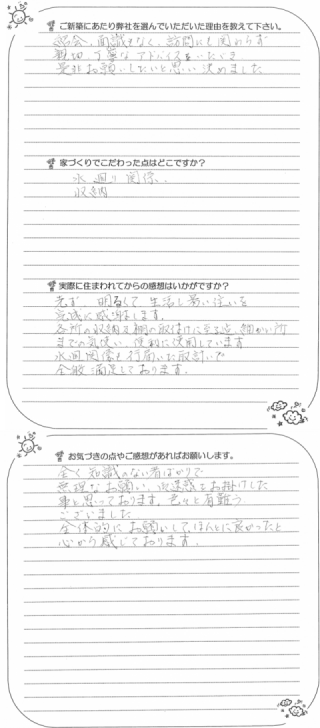 ご新築にあたり弊社を選んでいただいた理由を教えて下さい。
紹介、面識もなく、訪問にも関わらず
親切、丁寧なアドバイスをいただき
是非お願いしたいと思い決めました
家づくりでこだわった点はどこですか？
水廻り関係、
収納
実際に住まわれてからの感想はいかがですか？
先ず、明るくて生活し易い住いを
完成に感謝します。
各所の収納及棚の取付けに至る迄、細かい所
までの気使い、便利に使用しています
水廻関係も行届いた設計で
全般満足しております。
お気づきの点やご感想があればお願いします。
全く知識のない者ばかりで
無理なお願い、御迷惑をお掛けした
事と思っております。色々と有難う
ございました
全体的にお願いして、ほんとに良かったと
心から感じております。